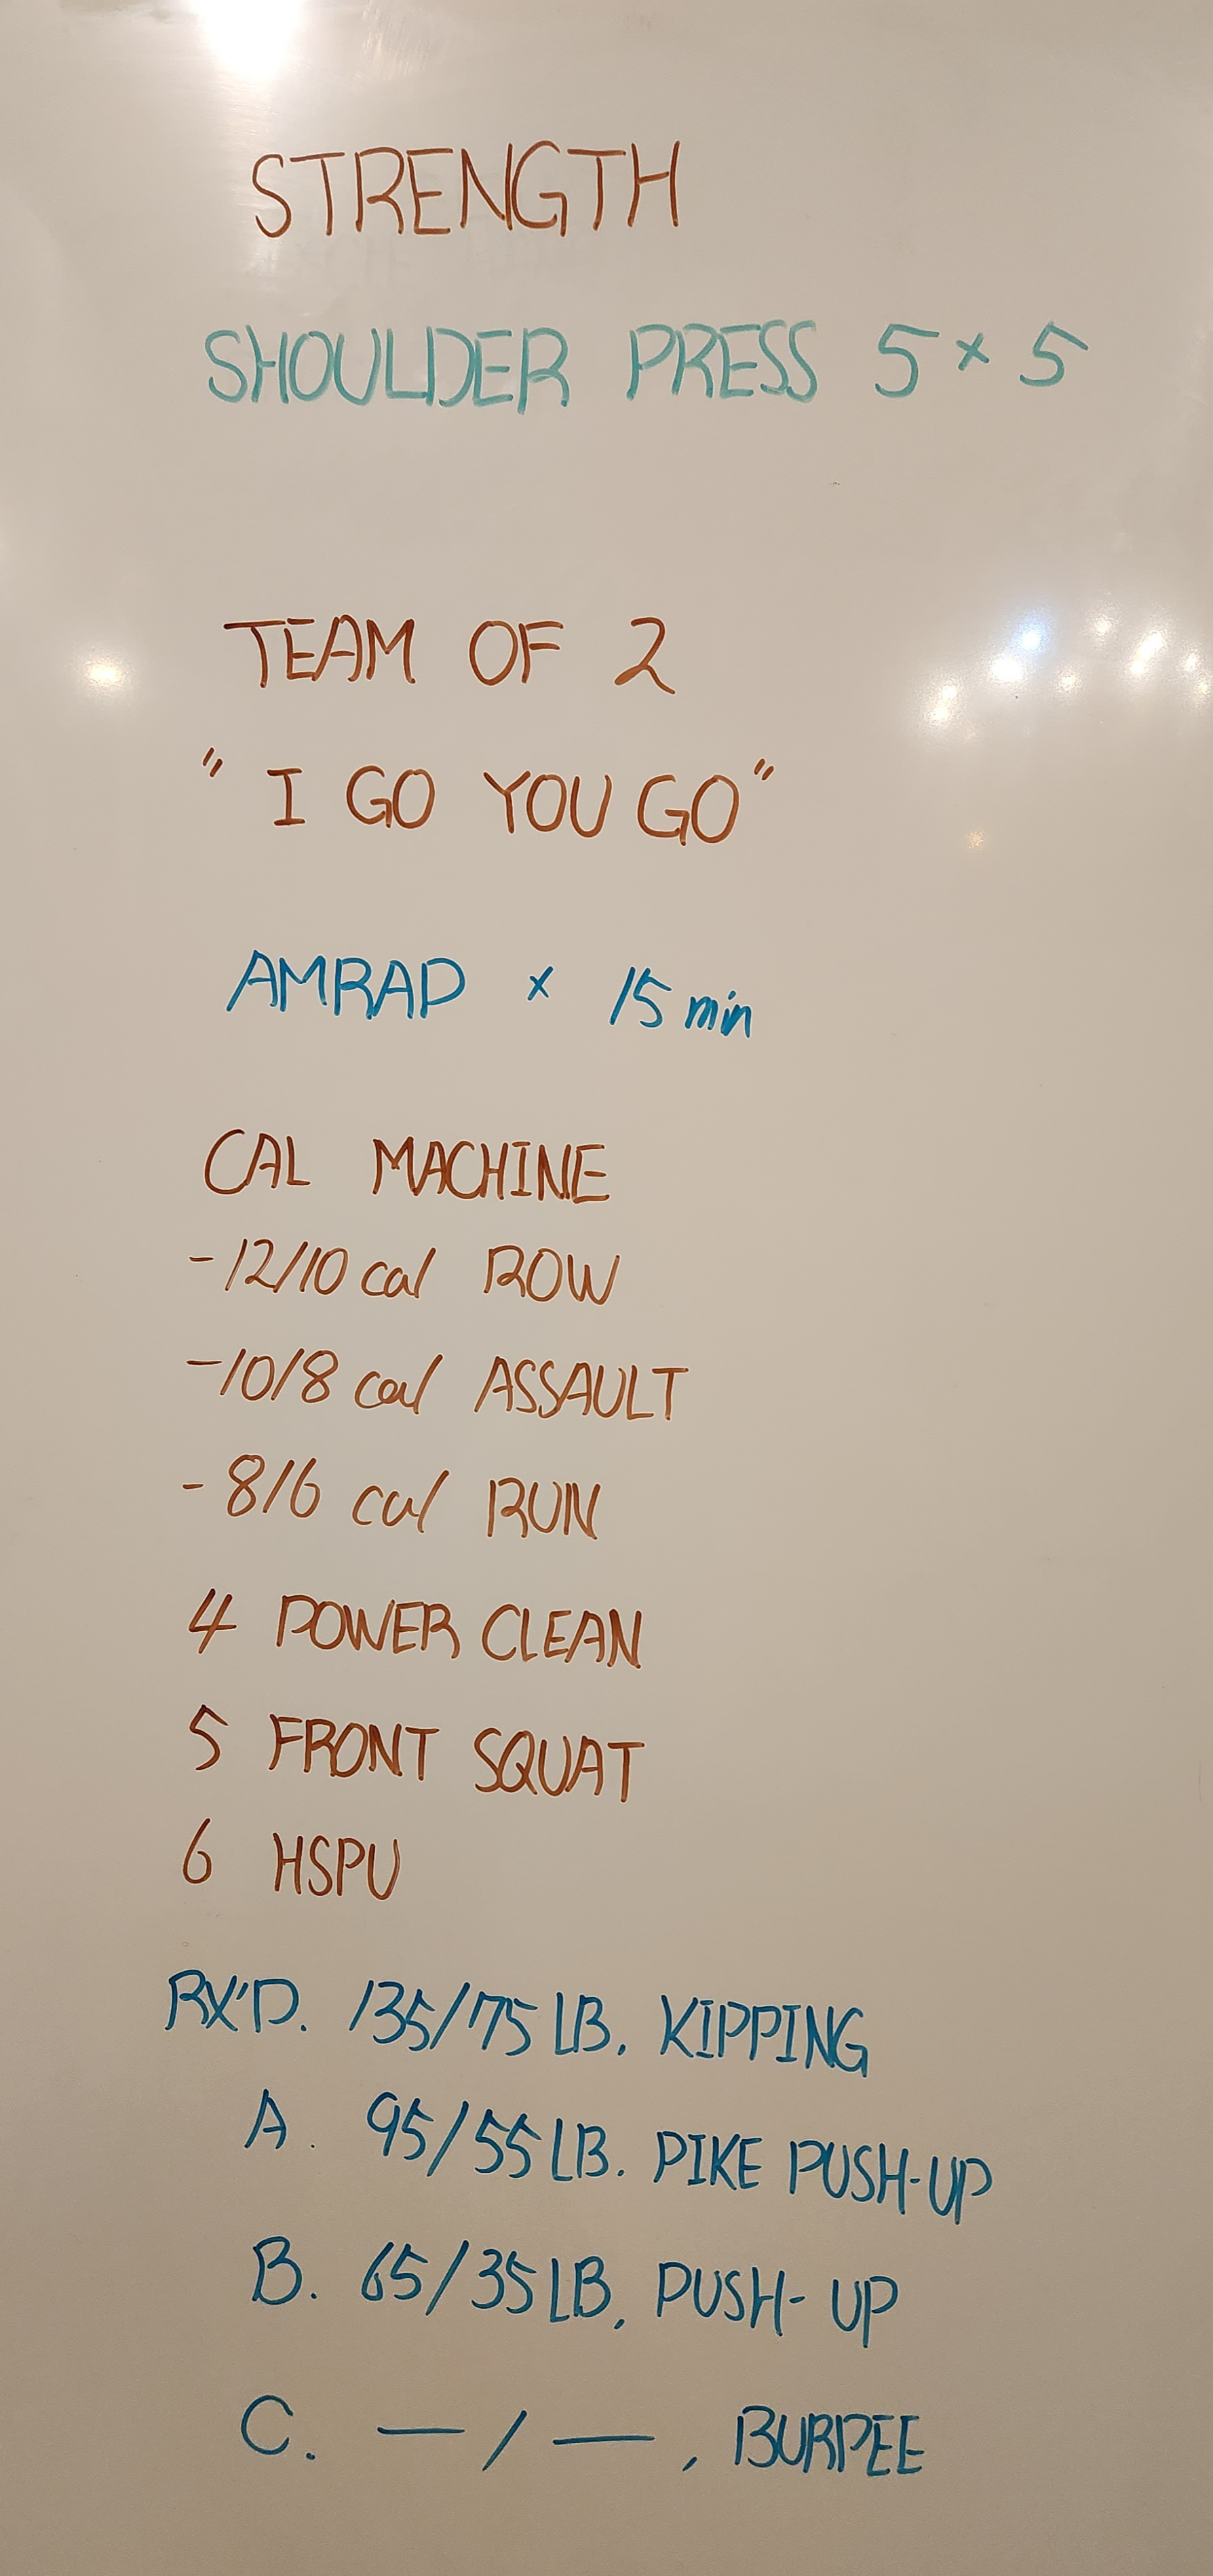 STRENGTH
SHOULDER PRESS 5 × 5
TEAM OF 2
" I GO YOU GO"
AMRAP × 15 min
CAL MACHINE
- 12/10 cal ROW
- 10/8 cal ASSAULT
- 8/6 cal RUN
4 POWER CLEAN
5 FRONT SQUAT
6 HSPU
RX'D. 135/75 LB, KIPPING
A. 95/55 LB. PIKE PUSH-UP
B. 65/35 LB, PUSH-UP
C. — / — , BURPEE